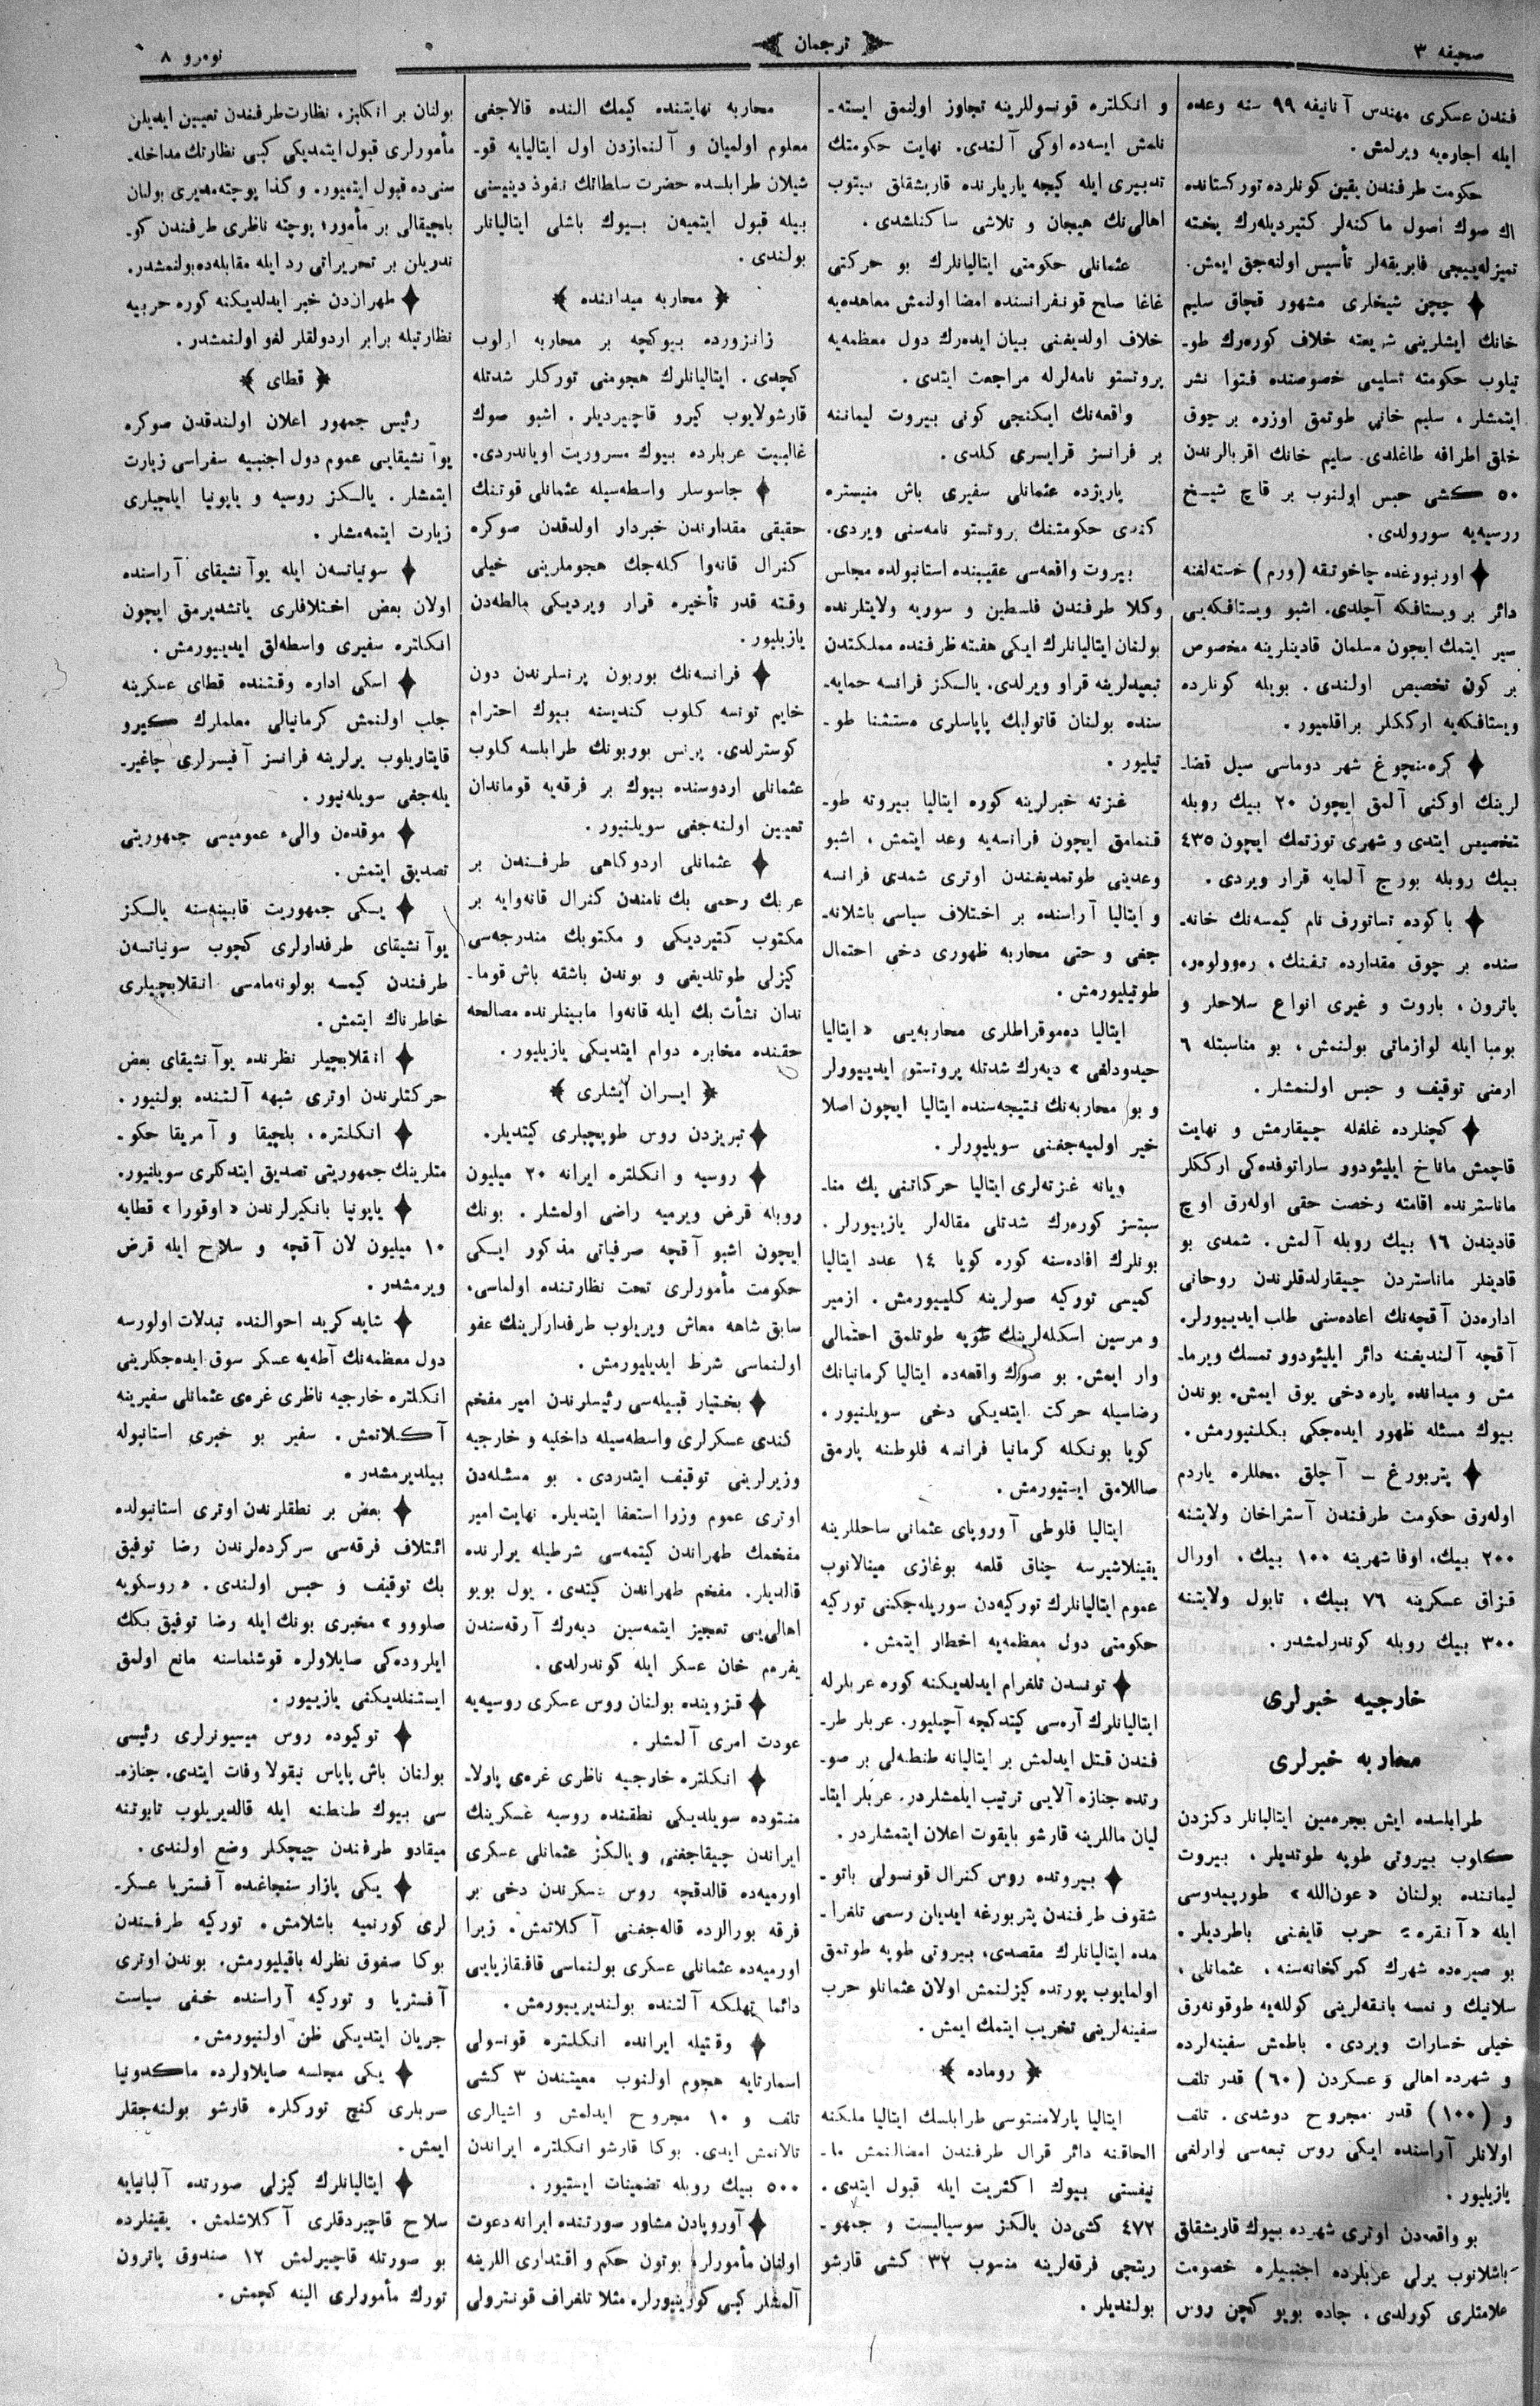 صحیفه ۳
ترجمان
نومرو ۸
فندن عسکری مهندس آنانیفه ۹۹ سنه وعده
ایله اجاره‌یه ویرلمش.
حکومت طرفندن یقین کونلرده تورکستانده
اك صوك اصول ماکنه‌لر کتیردیله‌رك پخته
تمیزله‌ییجی فابریقه‌لر تأسیس اولنه‌جق ایمش.
چچن شیخلری مشهور قچاق سلیم
خانك ایشلرینی شریعته خلاف کوره‌رك طو-
تیلوب حکومته تسلیمی خصوصنده فتوا نشر
ایتمشلر. سلیم خانی طوتمق اوزره بر چوق
خلق اطرافه طاغلدی. سلیم خانك اقربالرندن
۵۰ کشی حبس اولنوب بر قاچ شیخ
روسیه‌یه سورولدی.
اورنبورغده چاخوتقه (ورم) خسته‌لغنه
دائر بر ویستافکه آچلدی. اشبو ویستافکه‌یی
سیر ایتمك ایچون مسلمان قادینلرینه مخصوص
بر کون تخصیص اولندی. بویله کونلرده
ویستافکه‌یه ارککلر براقلمیور.
کره‌منچوغ شهر دوماسی سیل قضا-
لرینك اوکنی آلمق ایچون ۲۰ بیك روبله
تخصیص ایتدی و شهری توزتمك ایچون ۴۳۵
بیك روبله بورج آلمایه قرار ویردی.
باکوده تساتورف نام کیمسه‌نك خانه-
سنده بر چوق مقدارده تفنك، ره‌وولوه‌ر،
پاترون، باروت و غیری انواع سلاحلر و
بومبا ایله لوازماتی بولنمش، بو مناسبتله ۶
ارمنی توقیف و حبس اولنمشلر.
کچنلرده غلغله چیقارمش و نهایت
قاچمش ماناخ ایلیئودور ساراتوفده‌کی ارککلر
ماناسترنده اقامته رخصت حقی اوله‌رق اوچ
قادیندن ۱۶ بیك روبله آلمش. شمدی بو
قادینلر ماناستردن چیقارلدقلرندن روحانی
اداره‌دن آقچه‌نك اعاده‌سنی طلب ایدییورلر.
آقچه آلندیغنه دائر ایلیئودور تمسك ویرما-
مش و میدانده پاره دخی یوق ایمش. بوندن
بیوك مسئله ظهور ایده‌جکی بکلنیورمش.
پتربورغ — آچلق محللره یاردم
اوله‌رق حکومت طرفندن آستراخان ولایتنه
۲۰۰ بیك، اوفا شهرینه ۱۰۰ بیك، اورال
قزاق عسکرینه ۷۶ بیك، تابول ولایتنه
۳۰۰ بیك روبله کوندرلمشدر.
خارجیه خبرلری
محاربه خبرلری
طرابلسده ایش بجره‌مین ایتالیانلر دکزدن
کلوب بیروتی طوپه طوتدیلر. بیروت
لیماننده بولنان «عون‌الله» طورپیدوسی
ایله «آنقره» حرب قایغنی باطردیلر.
بو صیره‌ده شهرك کمرکخانه‌سنه، عثمانلی،
سلانیك و نمسه بانقه‌لرینی کولله‌یه طوقونه‌رق
خیلی خسارات ویردی. باطمش سفینه‌لرده
و شهرده اهالی و عسکردن (۶۰) قدر تلف
و (۱۰۰) قدر مجروح دوشدی. تلف
اولانلر آراسنده ایکی روس تبعه‌سی وارلغی
یازیلیور.
بو واقعه‌دن اوتری شهرده بیوك قاریشقاق
باشلانوب یرلی عربلرده اجنبیلره خصومت
علامتلری کورلدی. جاده بویو کچن روس
و انکلتره قونسوللرینه تجاوز اولنمق ایسته-
نلمش ایسه‌ده اوکی آلندی. نهایت حکومتك
تدبیری ایله کیچه یاریلرنده قاریشقاق بیتوب
اهالی‌نك هیجان و تلاشی ساکنلشدی.
عثمانلی حکومتی ایتالیانلرك بو حرکتی
غاغا صلح قونفرانسنده امضا اولنمش معاهده‌یه
خلاف اولدیغنی بیان ایده‌رك دول معظمه‌یه
پروتستو نامه‌لرله مراجعت ایتدی.
واقعه‌نك ایکنجی کونی بیروت لیماننه
بر فرانسز قرایسری کلدی.
پاریژده عثمانلی سفیری باش منیستره
کندی حکومتنك پروتستو نامه‌سنی ویردی.
بیروت واقعه‌سی عقیبنده استانبولده مجلس
وکلا طرفندن فلسطین و سوریه ولایتلرنده
بولنان ایتالیانلرك ایکی هفته ظرفنده مملکتدن
تبعیدلرینه قرار ویرلدی. یالکز فرانسه حمایه-
سنده بولنان قاتولیك پاپاسلری مستثنا طو-
تیلیور.
غزته خبرلرینه کوره ایتالیا بیروته طو-
قنمامق ایچون فرانسه‌یه وعد ایتمش، اشبو
وعدینی طوتمدیغندن اوتری شمدی فرانسه
و ایتالیا آراسنده بر اختلاف سیاسی باشلانه-
جغی و حتی محاربه ظهوری دخی احتمال
طوتیلیورمش.
ایتالیا ده‌موقراطلری محاربه‌یی «ایتالیا
حیدودلغی» دیه‌رك شدتله پروتستو ایدییورلر
و بو محاربه‌نك نتیجه‌سنده ایتالیا ایچون اصلا
خیر اولمیه‌جغنی سویلیورلر.
ویانه غزته‌لری ایتالیا حرکاتنی پك منا-
سبتسز کوره‌رك شدتلی مقاله‌لر یازییورلر.
بونلرك افاده‌سنه کوره کویا ۱۴ عدد ایتالیا
کمیسی تورکیه صولرینه کلییورمش. ازمیر
و مرسین اسکله‌لرینك طوپه طوتلمق احتمالی
وار ایمش. بو صوك واقعه‌ده ایتالیا کرمانیانك
رضاسیله حرکت ایتدیکی دخی سویلنیور.
کویا بونکله کرمانیا فرانسه فلوطنه پارمق
صاللامق ایستیورمش.
ایتالیا فلوطی آوروپای عثمانی ساحللرینه
یقینلاشیرسه چناق قلعه بوغازی مینالانوب
عموم ایتالیانلرك تورکیه‌دن سوریله‌جکنی تورکیه
حکومتی دول معظمه‌یه اخطار ایتمش.
تونسدن تلغرام ایدلدیکنه کوره عربلرله
ایتالیانلرك آره‌سی کیتدکچه آچیلیور. عربلر طر-
فندن قتل ایدلمش بر ایتالیانه طنطنه‌لی بر صو-
رتده جنازه آلایی ترتیب ایلمشلردر. عربلر ایتا-
لیان ماللرینه قارشو بایقوت اعلان ایتمشلردر.
بیروتده روس کنرال قونسولی باتو-
شقوف طرفندن پتربورغه ایدیان رسمی تلغرا-
مده ایتالیانلرك مقصدی، بیروتی طوپه طوتمق
اولمایوب پورتده کیزلنمش اولان عثمانلو حرب
سفینه‌لرینی تخریب ایتمك ایمش.
روماده
ایتالیا پارلامنتوسی طرابلسك ایتالیا ملکنه
الحاقنه دائر قرال طرفندن امضالنمش ما-
نیفستی بیوك اکثریت ایله قبول ایتدی.
۴۷۲ کشی‌دن یالکز سوسیالیست و جمهو-
ریتچی فرقه‌لرینه منسوب ۳۲ کشی قارشو
بولندیلر.
محاربه نهایتنده کیمك النده قالاجغی
معلوم اولمیان و آلنمازدن اول ایتالیایه قو-
شیلان طرابلسده حضرت سلطانك نفوذ دینیسنی
بیله قبول ایتمیه‌ن بیوك باشلی ایتالیانلر
بولندی.
محاربه میداننده
زانزورده بیوکچه بر محاربه اولوب
کچدی. ایتالیانلرك هجومنی تورکلر شدتله
قارشولایوب کیرو قاچیردیلر. اشبو صوك
غالبیت عربلرده بیوك مسروریت اویاندردی.
جاسوسلر واسطه‌سیله عثمانلی قوتنك
حقیقی مقدارندن خبردار اولدقدن صوکره
کنرال قانه‌وا کله‌جك هجوملرینی خیلی
وقته قدر تأخیره قرار ویردیکی مالطه‌دن
یازیلیور.
فرانسه‌نك بوربون پرنسلرندن دون
خایم تونسه کلوب کندیسنه بیوك احترام
کوسترلدی. پرنس بوربونك طرابلسه کلوب
عثمانلی اردوسنده بیوك بر فرقه‌یه قوماندان
تعیین اولنه‌جغی سویلنیور.
عثمانلی اردوکاهی طرفندن بر
عربك رحمی بك نامندن کنرال قانه‌وایه بر
مکتوب کتیردیکی و مکتوبك مندرجه‌سی
کیزلی طوتلدیغی و بوندن باشقه باش قوما-
ندان نشأت بك ایله قانه‌وا مابینلرنده مصالحه
حقنده مخابره دوام ایتدیکی یازیلیور.
ایران ایشلری
تبریزدن روس طوپچیلری کیتدیلر.
روسیه و انکلتره ایرانه ۲۰ میلیون
روبله قرض ویرمیه راضی اولمشلر. بونك
ایچون اشبو آقچه صرفیاتی مذکور ایکی
حکومت مأمورلری تحت نظارتنده اولماسی،
سابق شاهه معاش ویریلوب طرفدارلرینك عفو
اولنماسی شرط ایدیلیورمش.
بختیار قبیله‌سی رئیسلرندن امیر مفخم
کندی عسکرلری واسطه‌سیله داخلیه و خارجیه
وزیرلرینی توقیف ایتدردی. بو مسئله‌دن
اوتری عموم وزرا استعفا ایتدیلر. نهایت امیر
مفخمك طهراندن کیتمه‌سی شرطیله یرلرنده
قالدیلر. مفخم طهراندن کیتدی. یول بویو
اهالی‌یی تعجیز ایتمه‌سین دیه‌رك آرقه‌سندن
یفره‌م خان عسکر ایله کوندرلدی.
قزوینده بولنان روس عسکری روسیه‌یه
عودت امری آلمشلر.
انکلتره خارجیه ناظری غره‌ی پارلا-
منتوده سویلدیکی نطقنده روسیه عسکرینك
ایراندن چیقاجغنی و یالکز عثمانلی عسکری
اورمیه‌ده قالدقچه روس عسکرندن دخی بر
فرقه بورالرده قاله‌جغنی آکلاتمش. زیرا
اورمیه‌ده عثمانلی عسکری بولنماسی قافقازیایی
دائما تهلکه آلتنده بولندیرییورمش.
وقتیله ایرانده انکلتره قونسولی
اسمارتایه هجوم اولنوب معیتندن ۳ کشی
تلف و ۱۰ مجروح ایدلمش و اشیالری
تالانمش ایدی. بوکا قارشو انکلتره ایراندن
۵۰۰ بیك روبله تضمینات ایستیور.
آوروپادن مشاور صورتنده ایرانه دعوت
اولنان مأمورلر، بوتون حکم و اقتداری اللرینه
آلمشلر کبی کورینیورلر. مثلا تلغراف قونترولی
بولنان بر انکلیز، نظارت طرفندن تعیین ایدیلن
مأمورلری قبول ایتمدیکی کبی نظارتك مداخله-
سنی‌ده قبول ایتمیور. و کذا پوچته مدیری بولنان
بلچیقالی بر مأمور، پوچته ناظری طرفندن کو-
ندریلن بر تحریراتی رد ایله مقابله‌ده بولنمشدر.
طهران‌دن خبر ایدلدیکنه کوره حربیه
نظارتیله برابر اردولقلر لغو اولنمشدر.
قطای
رئیس جمهور اعلان اولندقدن صوکره
یوآنشیقایی عموم دول اجنبیه سفراسی زیارت
ایتمشلر. یالکز روسیه و یاپونیا ایلچیلری
زیارت ایتمه‌مشلر.
سونیاتسه‌ن ایله یوآنشیقای آراسنده
اولان بعض اختلافلری یاتشدیرمق ایچون
انکلتره سفیری واسطه‌لق ایدییورمش.
اسکی اداره وقتنده قطای عسکرینه
جلب اولنمش کرمانیالی معلملرك کیرو
قایتاریلوب یرلرینه فرانسز آفیسرلری چاغیر-
یله‌جغی سویله‌نیور.
موقده‌ن والیء عمومیسی جمهوریتی
تصدیق ایتمش.
یکی جمهوریت قابینه‌سنه یالکز
یوآنشیقای طرفدارلری کچوب سونیاتسه‌ن
طرفندن کیمسه بولونه‌مامسی انقلابچیلری
خاطرناك ایتمش.
انقلابچیلر نظرنده یوآنشیقای بعض
حرکتلرندن اوتری شبهه آلتنده بولنیور.
انکلتره، بلچیقا و آمریقا حکو-
متلرینك جمهوریتی تصدیق ایتدکلری سویلنیور.
یاپونیا بانکیرلرندن «اوقورا» قطایه
۱۰ میلیون لان آقچه و سلاح ایله قرض
ویرمشدر.
شاید کرید احوالنده تبدلات اولورسه
دول معظمه‌نك آطه‌یه عسکر سوق ایده‌جکلرینی
انکلتره خارجیه ناظری غره‌ی عثمانلی سفیرینه
آکلاتمش. سفیر بو خبری استانبوله
بیلدیرمشدر.
بعض بر نطقلرندن اوتری استانبولده
ائتلاف فرقه‌سی سرکرده‌لرندن رضا توفیق
بك توقیف و حبس اولندی. «روسکویه
صلووو» مخبری بونك ایله رضا توفیق بکك
ایلروده‌کی صایلاولره قوشلماسنه مانع اولمق
ایستنلدیکنی یازییور.
توکیوده روس میسیونرلری رئیسی
بولنان باش پاپاس نیقولا وفات ایتدی. جنازه-
سی بیوك طنطنه ایله قالدیریلوب تابوتنه
میقادو طرفندن چیچکلر وضع اولندی.
یکی بازار سنجاغنده آفستریا عسکر-
لری کورنمیه باشلامش. تورکیه طرفندن
بوکا صغوق نظرله باقیلیورمش. بوندن اوتری
آفستریا و تورکیه آراسنده خفی سیاست
جریان ایتدیکی ظن اولنیورمش.
یکی مجلسه صایلاولرده ماکدونیا
صربلری کنچ تورکلره قارشو بولنه‌جقلر
ایمش.
ایتالیانلرك کیزلی صورتده آلبانیایه
سلاح قاچیردقلری آکلاشلمش. یقینلرده
بو صورتله قاچیرلمش ۱۲ صندوق پاترون
تورك مأمورلری الینه کچمش.